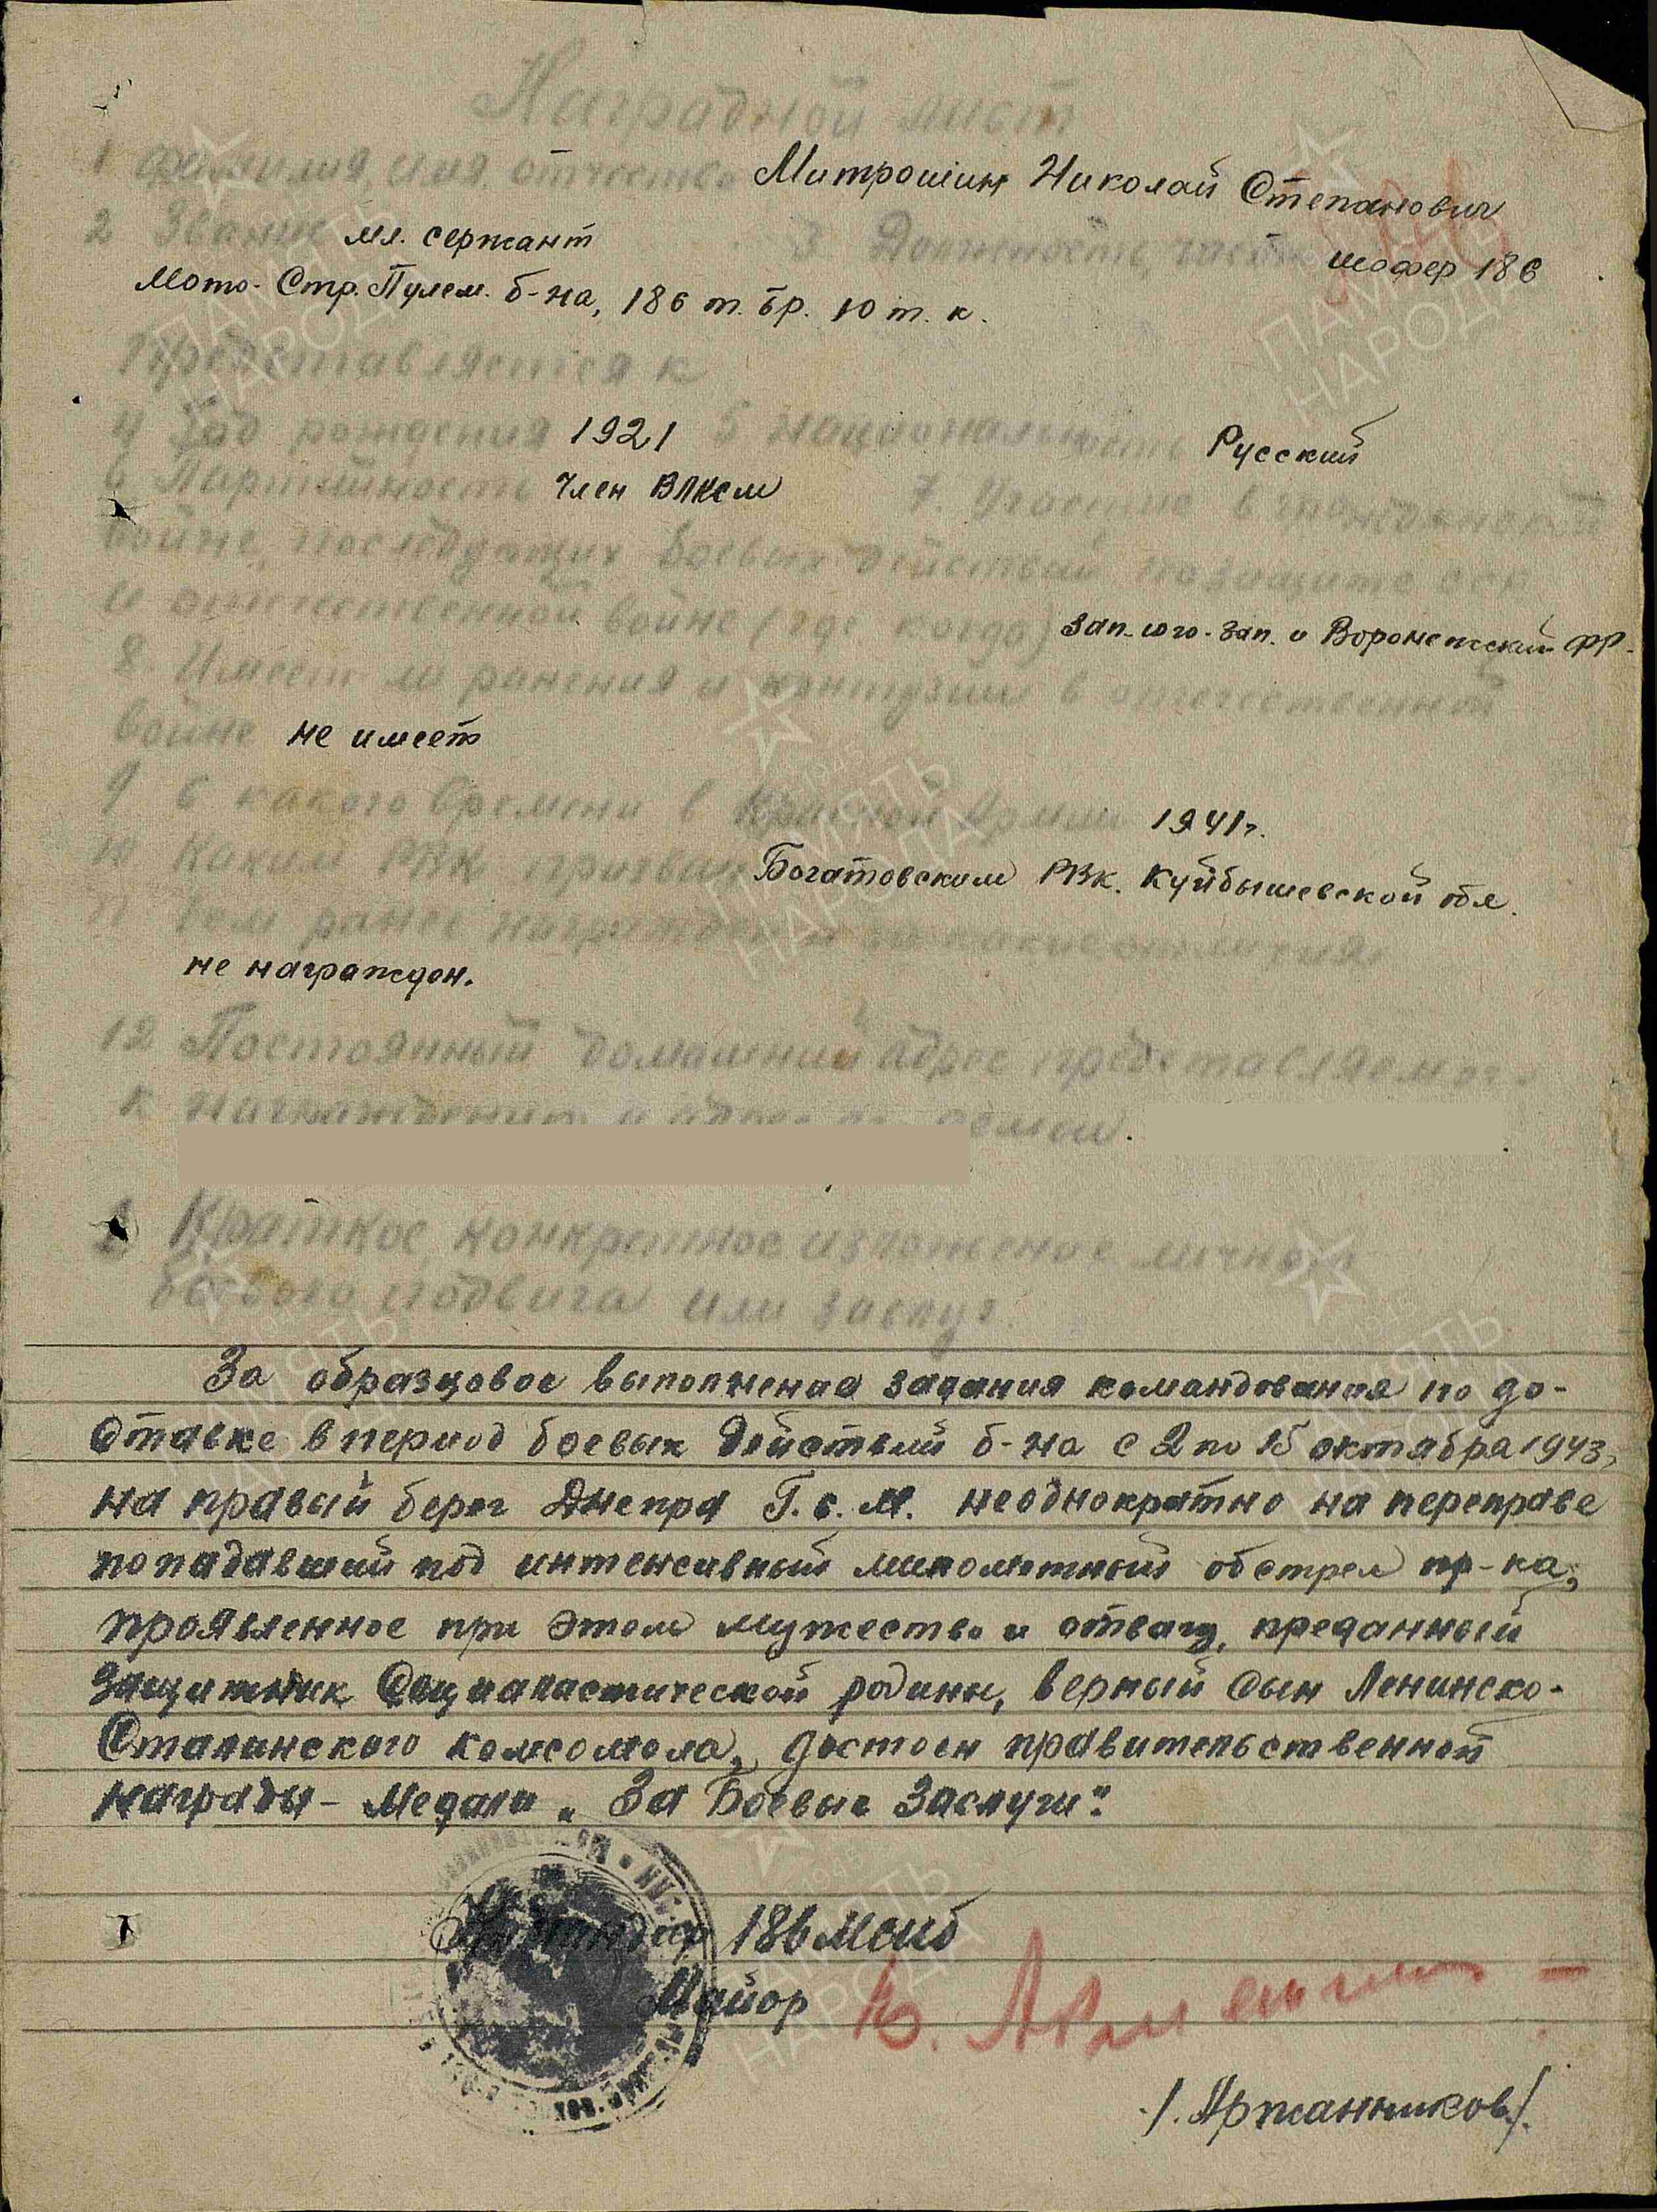 Наградной лист
1 Фамилия, Имя, отчество Митрошин Николай Степанович
2 Звание мл. сержант 3 Должность, часть шофер 186
Мото-Стр. Пулем. б-на, 186 т. бр. 10 т. к.
Представляется к
4 Год рождения 1921 5 Национальность Русский
6 Партийность Член ВЛКСМ 7. Участие в гражданской
войне, последующих боевых действий по защите ССР
и отечественной войне (где когда) Зап. юго-зап. и Воронежский фр.
8 Имеет ли ранения и контузии в отечественной
войне не имеет
9 С какого времени в Красной Армии 1941 г.
10 Каким РВК призван Богатовским РВК. Куйбышевской обл.
11 Чем ранее награжден и за какие отличия
не награжден.
12 Постоянный домашний адрес представляемого
к награждению и адрес его семьи.
Краткое, конкретное изложение личного
боевого подвига или заслуг.
За образцовое выполнение задания командования по до-
ставке в период боевых действий б-на с 2 по 15 октября 1943г
на правый берег Днепра Г.С.М. неоднократно на переправе
попадавший под интенсивный минометный обстрел пр-ка,
проявленное при этом мужество и отвагу, преданный
защитник Социалистической родины, верный сын Ленинско-
Сталинского комсомола, достоен правительственной
награды - Медали „За Боевые Заслуги".
ПАМЯТЬ
НАРОДА
Командир 186 МСПБ
Майор
/. Аржанников/.